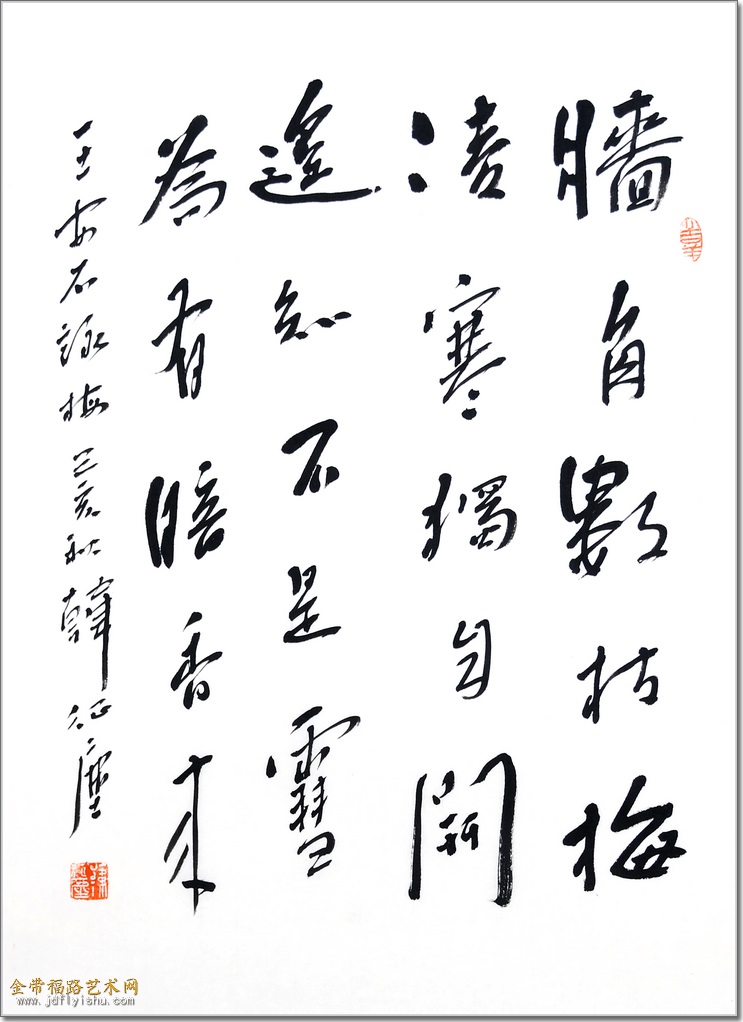 牆角數枝梅
凌寒獨自開
遙知不是雪
為有暗香來
王安石詠梅己亥秋韓征塵
金带福路艺术网
www.jdflyishu.com